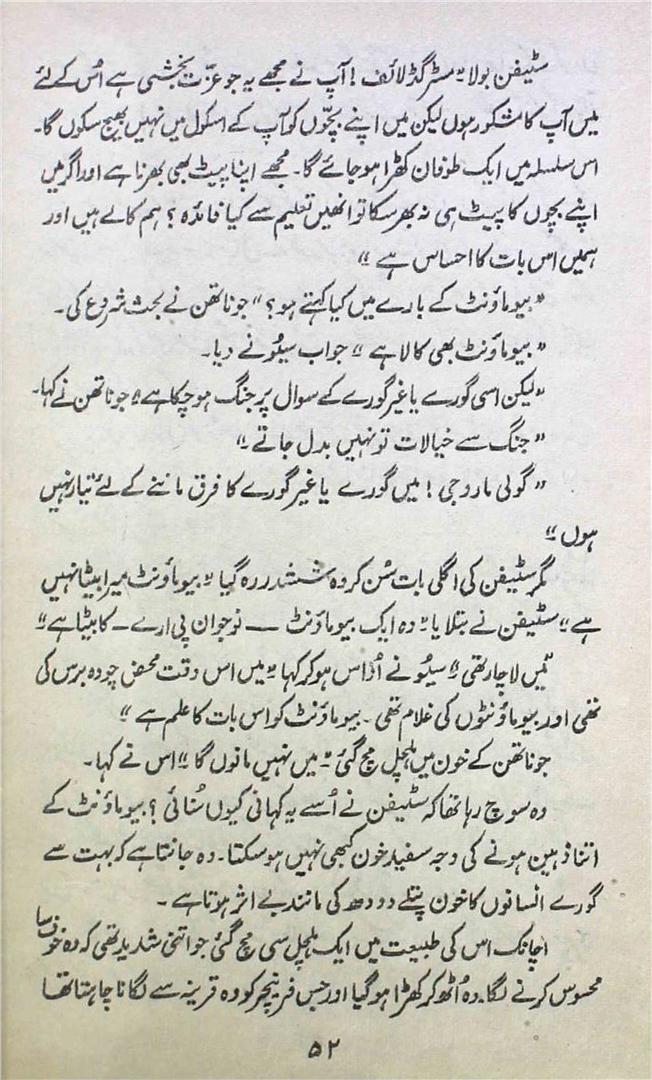 سٹیفن بولا "مسٹر گڈلائف! آپ نے مجھے یہ جو عزّت بخشی ہے اُس کے لئے
میں آپ کا مشکور ہوں لیکن میں اپنے بچّوں کو آپ کے اسکول میں نہیں بھیج سکوں گا۔
اس سلسلہ میں ایک طوفان کھڑا ہو جائے گا۔ مجھے اپنا پیٹ بھی بھرنا ہے اور اگر میں
اپنے بچوں کا پیٹ ہی نہ بھر سکا تو انھیں تعلیم سے کیا فائدہ؟ ہم کالے ہیں اور
ہمیں اس بات کا احساس ہے"
"بیوماؤنٹ کے بارے میں کیا کہتے ہو؟" جوناتھن نے بحث شروع کی۔
"بیوماؤنٹ بھی کالا ہے" جواب سیئو نے دیا۔
"لیکن اسی گورے یا غیر گورے کے سوال پر جنگ ہو چکا ہے" جوناتھن نے کہا۔
"جنگ سے خیالات تو نہیں بدل جاتے"
"گولی مارو جی! میں گورے یا غیر گورے کا فرق ماننے کے لئے تیار نہیں
ہوں"
مگر سٹیفن کی اگلی بات سُن کر وہ ششدر رہ گیا "بیوماؤنٹ میرا بیٹا نہیں
ہے" سٹیفن نے بتلایا "وہ ایک بیوماؤنٹ — نوجوان پی ارے — کا بیٹا ہے"
"میں لاچار تھی" سیئو نے اُداس ہو کر کہا "میں اس وقت محض چودہ برس کی
تھی اور بیوماؤنٹوں کی غلام تھی۔ بیوماؤنٹ کو اس بات کا علم ہے"
جوناتھن کے خون میں ہلچل مچ گئی "میں نہیں مانوں گا" اس نے کہا۔
وہ سوچ رہا تھا کہ سٹیفن نے اُسے یہ کہانی کیوں سُنائی؟ بیوماؤنٹ کے
اتنا ذہین ہونے کی وجہ سفید خون کبھی نہیں ہو سکتا۔ وہ جانتا ہے کہ بہت سے
گورے انسانوں کا خون پتلے دودھ کی مانند بے اثر ہوتا ہے۔
اچانک اس کی طبیعت میں ایک ہلچل سی مچ گئی جو اتنی شدید تھی کہ وہ خوف سا
محسوس کرنے لگا۔ وہ اُٹھ کر کھڑا ہو گیا اور جس فرنیچر کو وہ قرینہ سے لگانا چاہتا تھا
۵۲